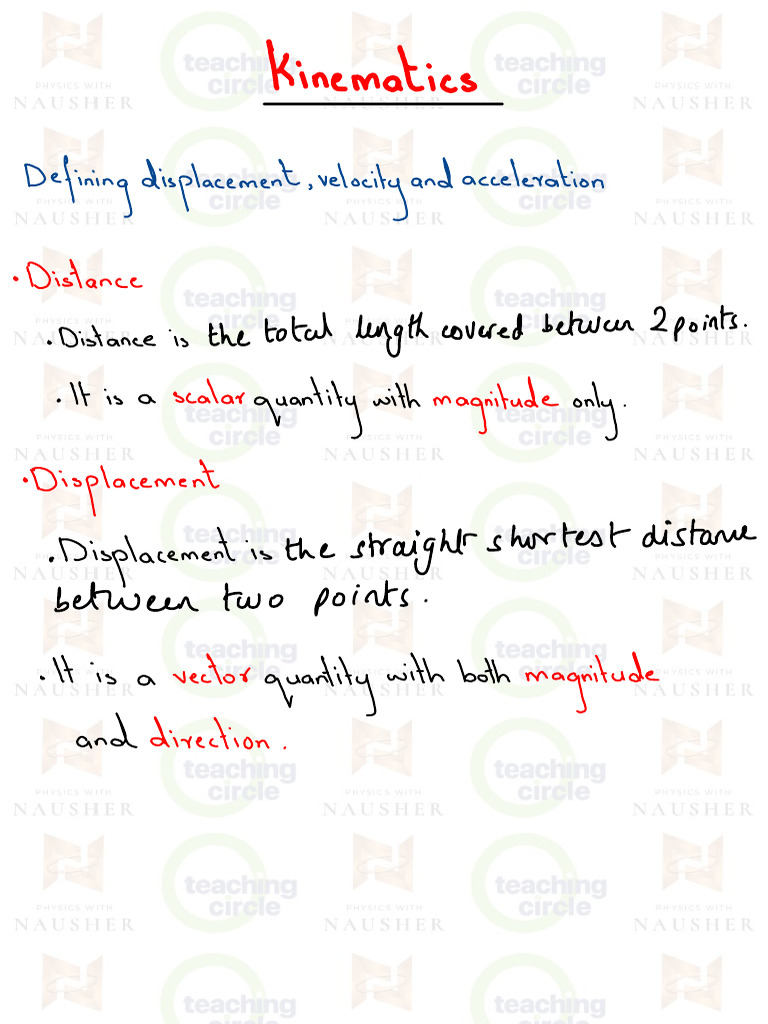 Kinematics
Defining displacement, velocity and acceleration
• Distance
• Distance is the total length covered between 2 points.
• It is a scalar quantity with magnitude only.
• Displacement
• Displacement is the straight shortest distance
between two points.
• It is a vector quantity with both magnitude
and direction.
teaching circle
PHYSICS WITH
NAUSHER